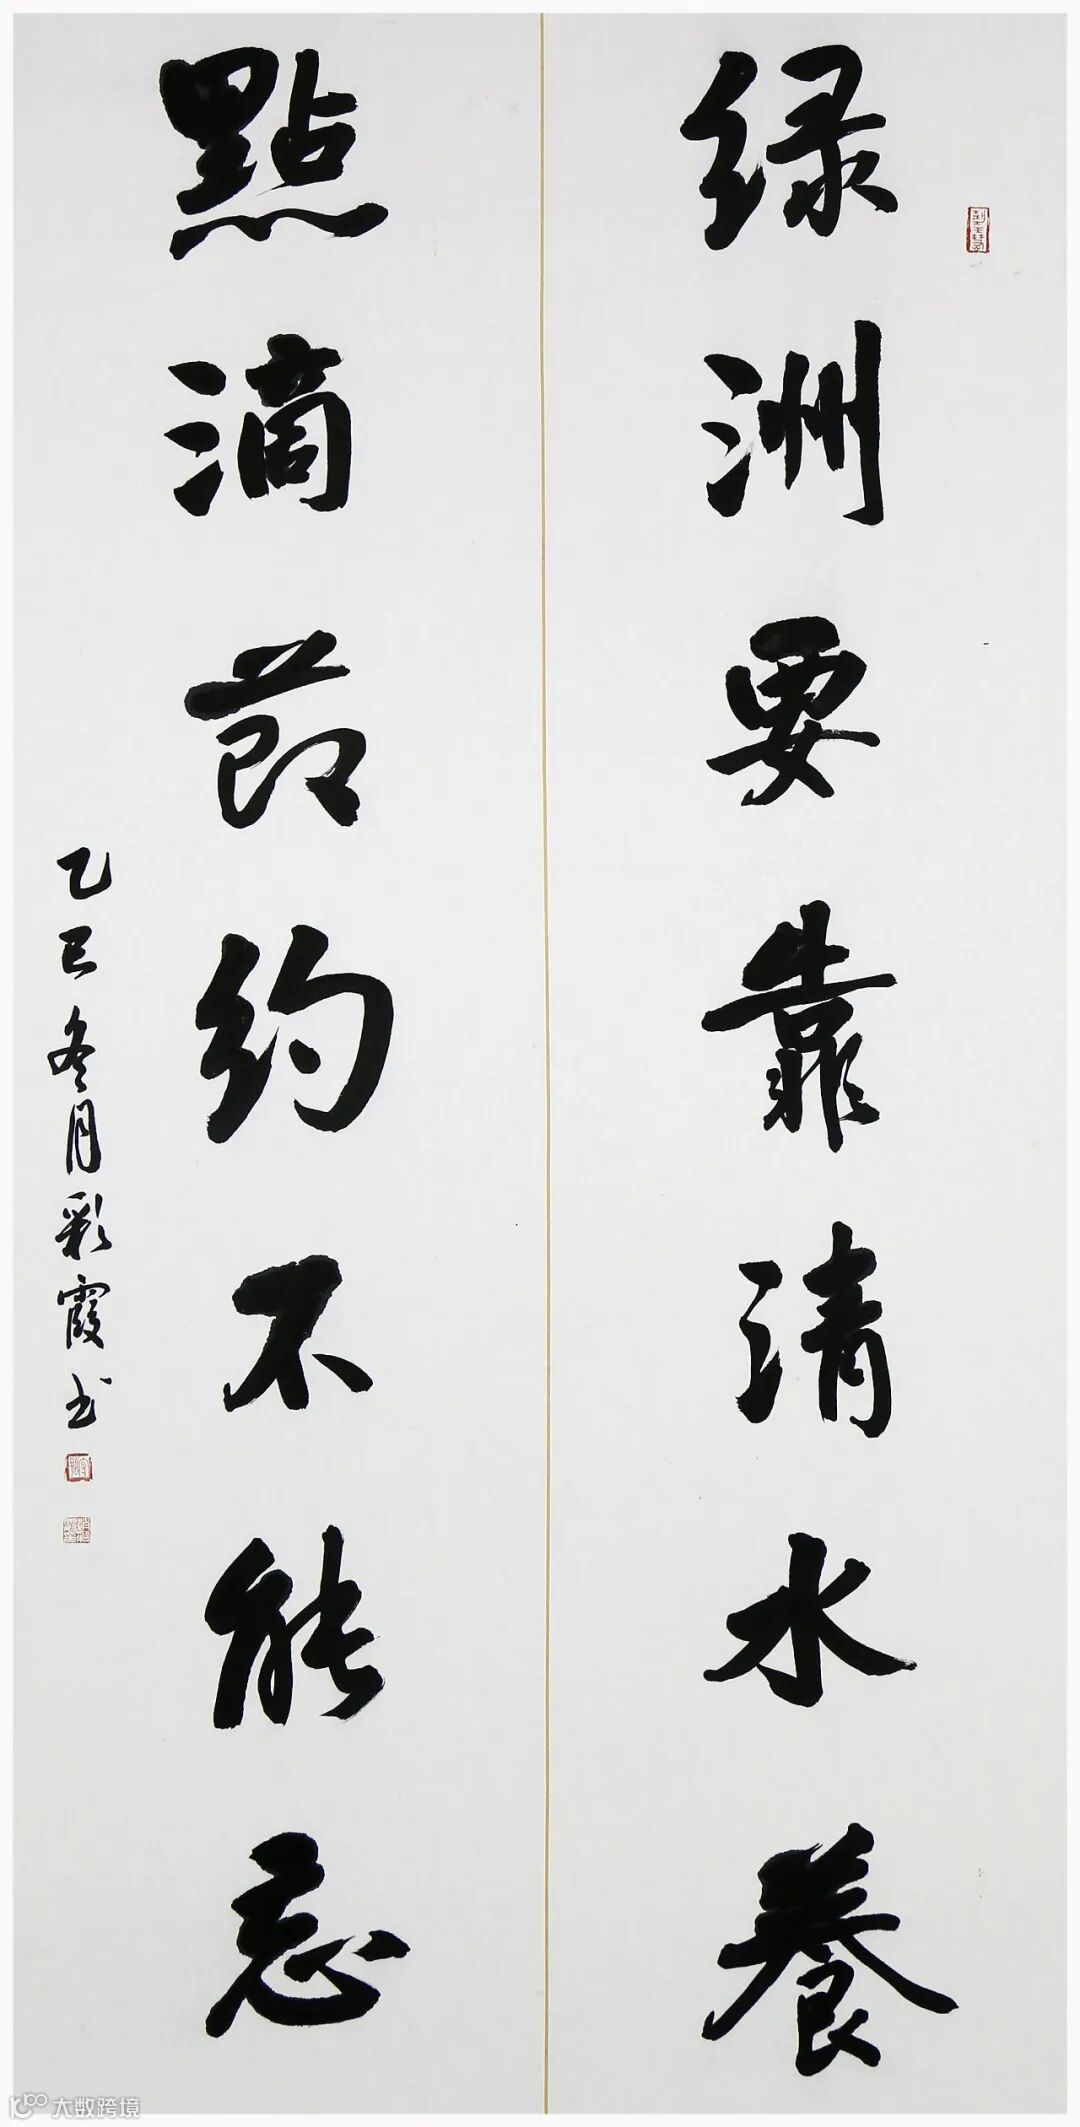 绿洲要靠清水養
點滴節约不能忘
乙巳冬月彩霞书
大数跨境